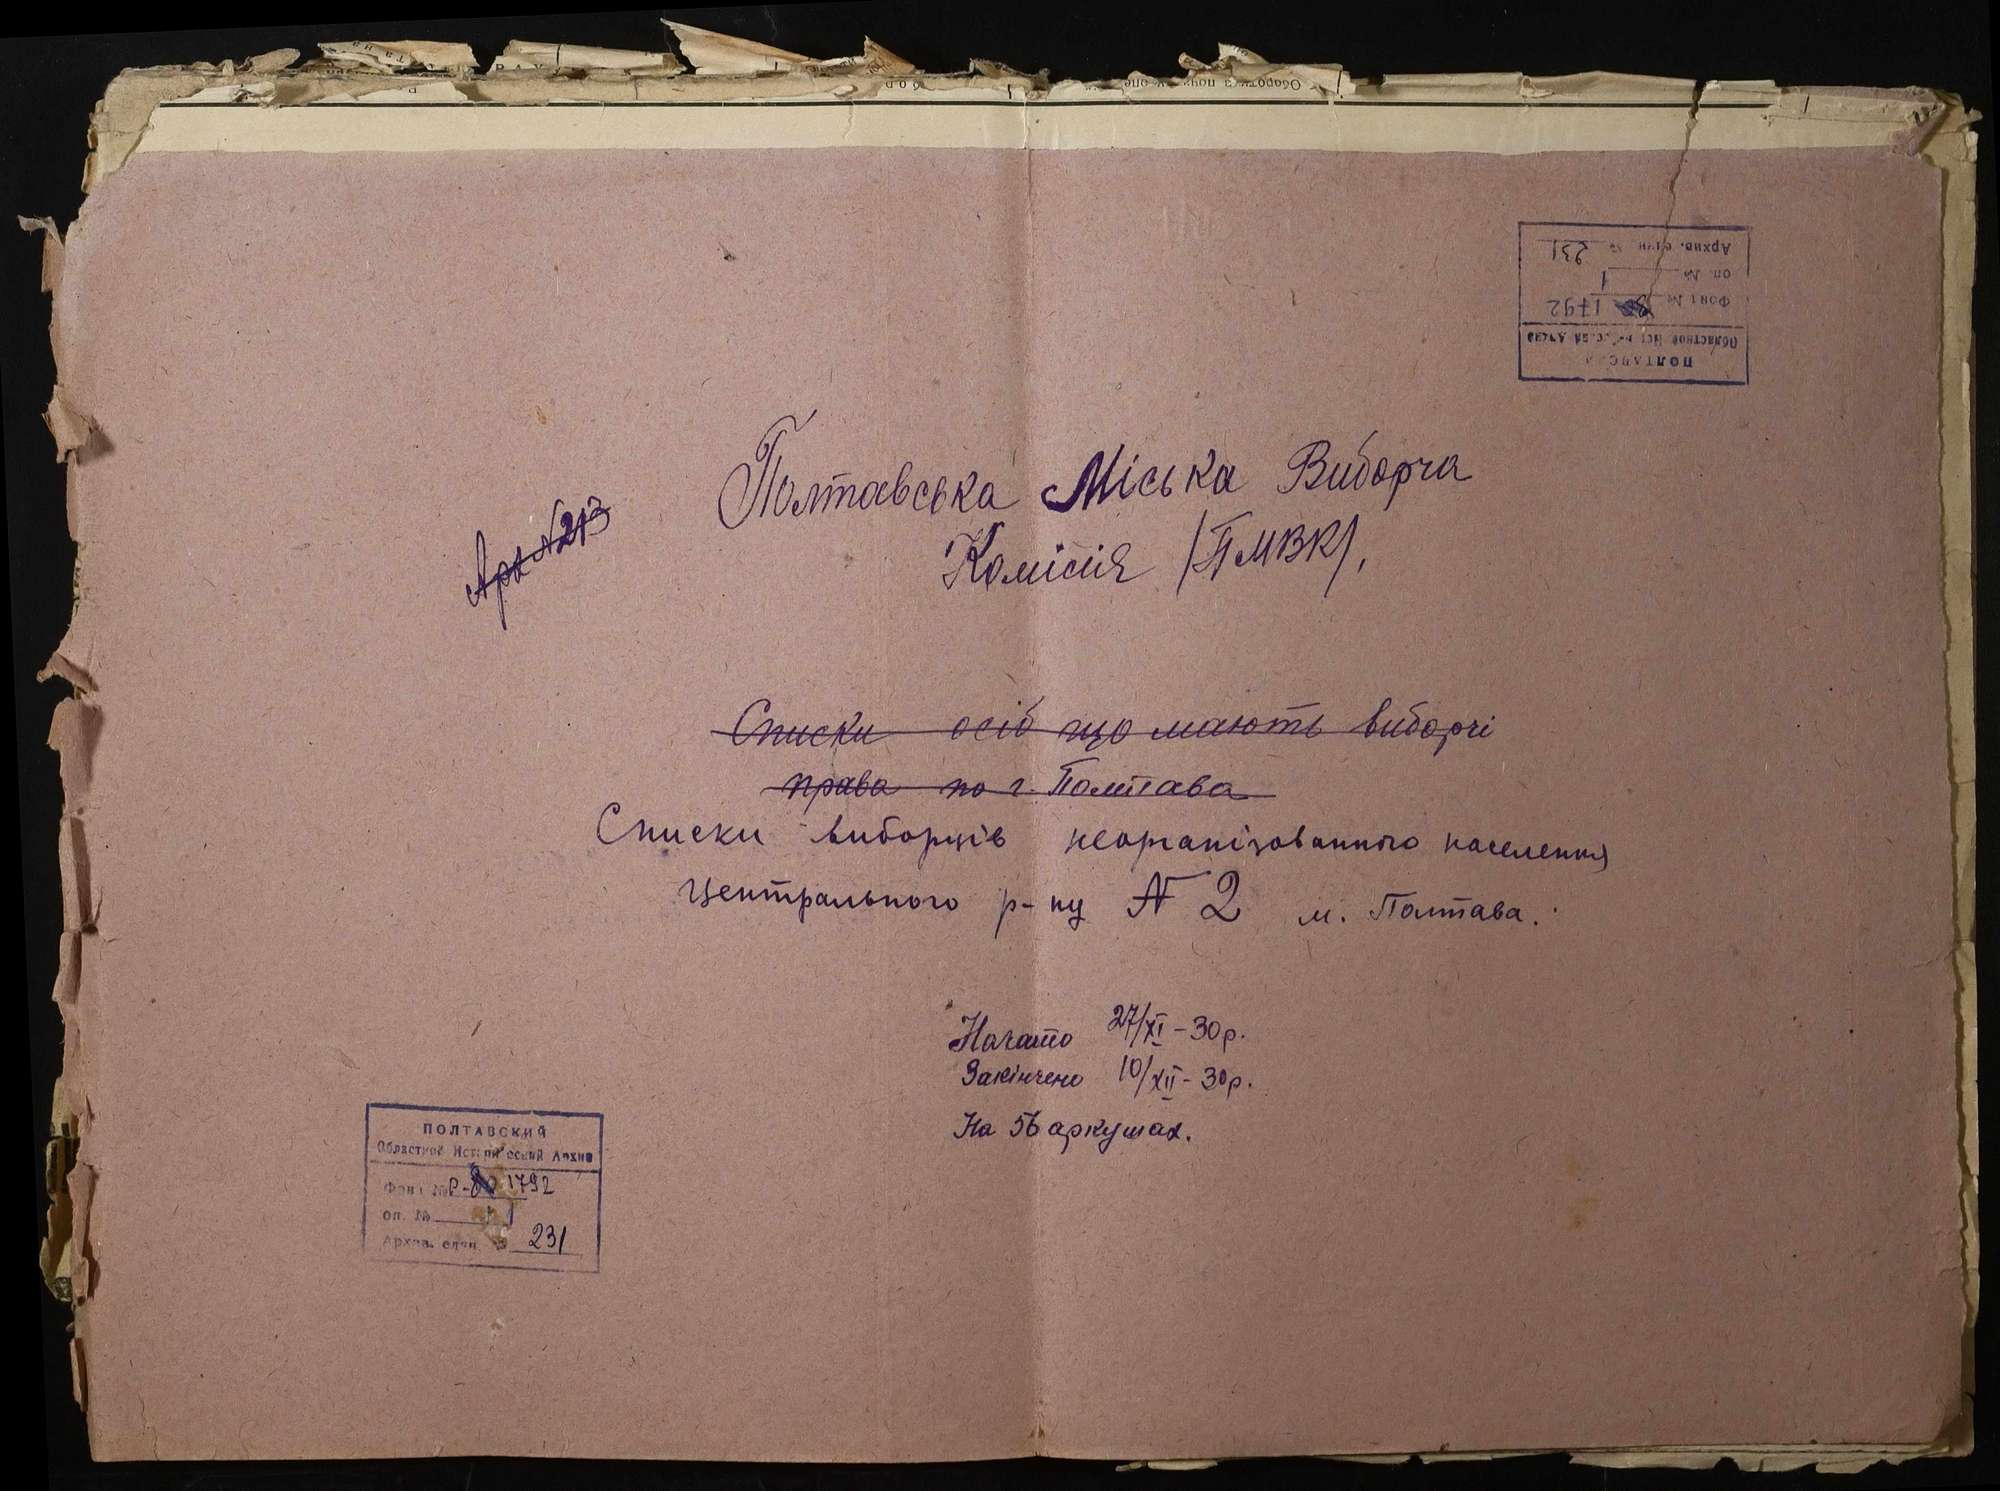 ПОЛТАВСКИЙ
Областной Исторический Архив
Фонд № 1792
оп. № 1
Архив. един. № 231
Полтавська Міська Виборча
Комісія /ПМВК/.
Арк №213
Списки осіб що мають виборчі
права по г. Полтава
Списки виборців неорганізованного населення
Центрального р-ну № 2 м. Полтава.
Начато 27/XI - 30 р.
Закінчено 10/XII - 30 р.
На 56 аркушах.
ПОЛТАВСКИЙ
Областной Исторический Архив
Фонд № Р- 1792
оп. № 1
Архив. един. № 231